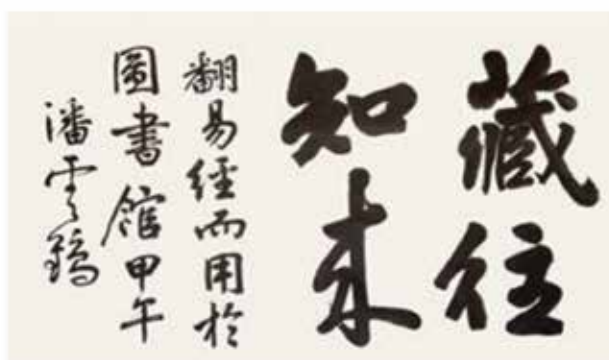 藏往
知来
翻易经而用於
圖書館甲午
潘云鶴